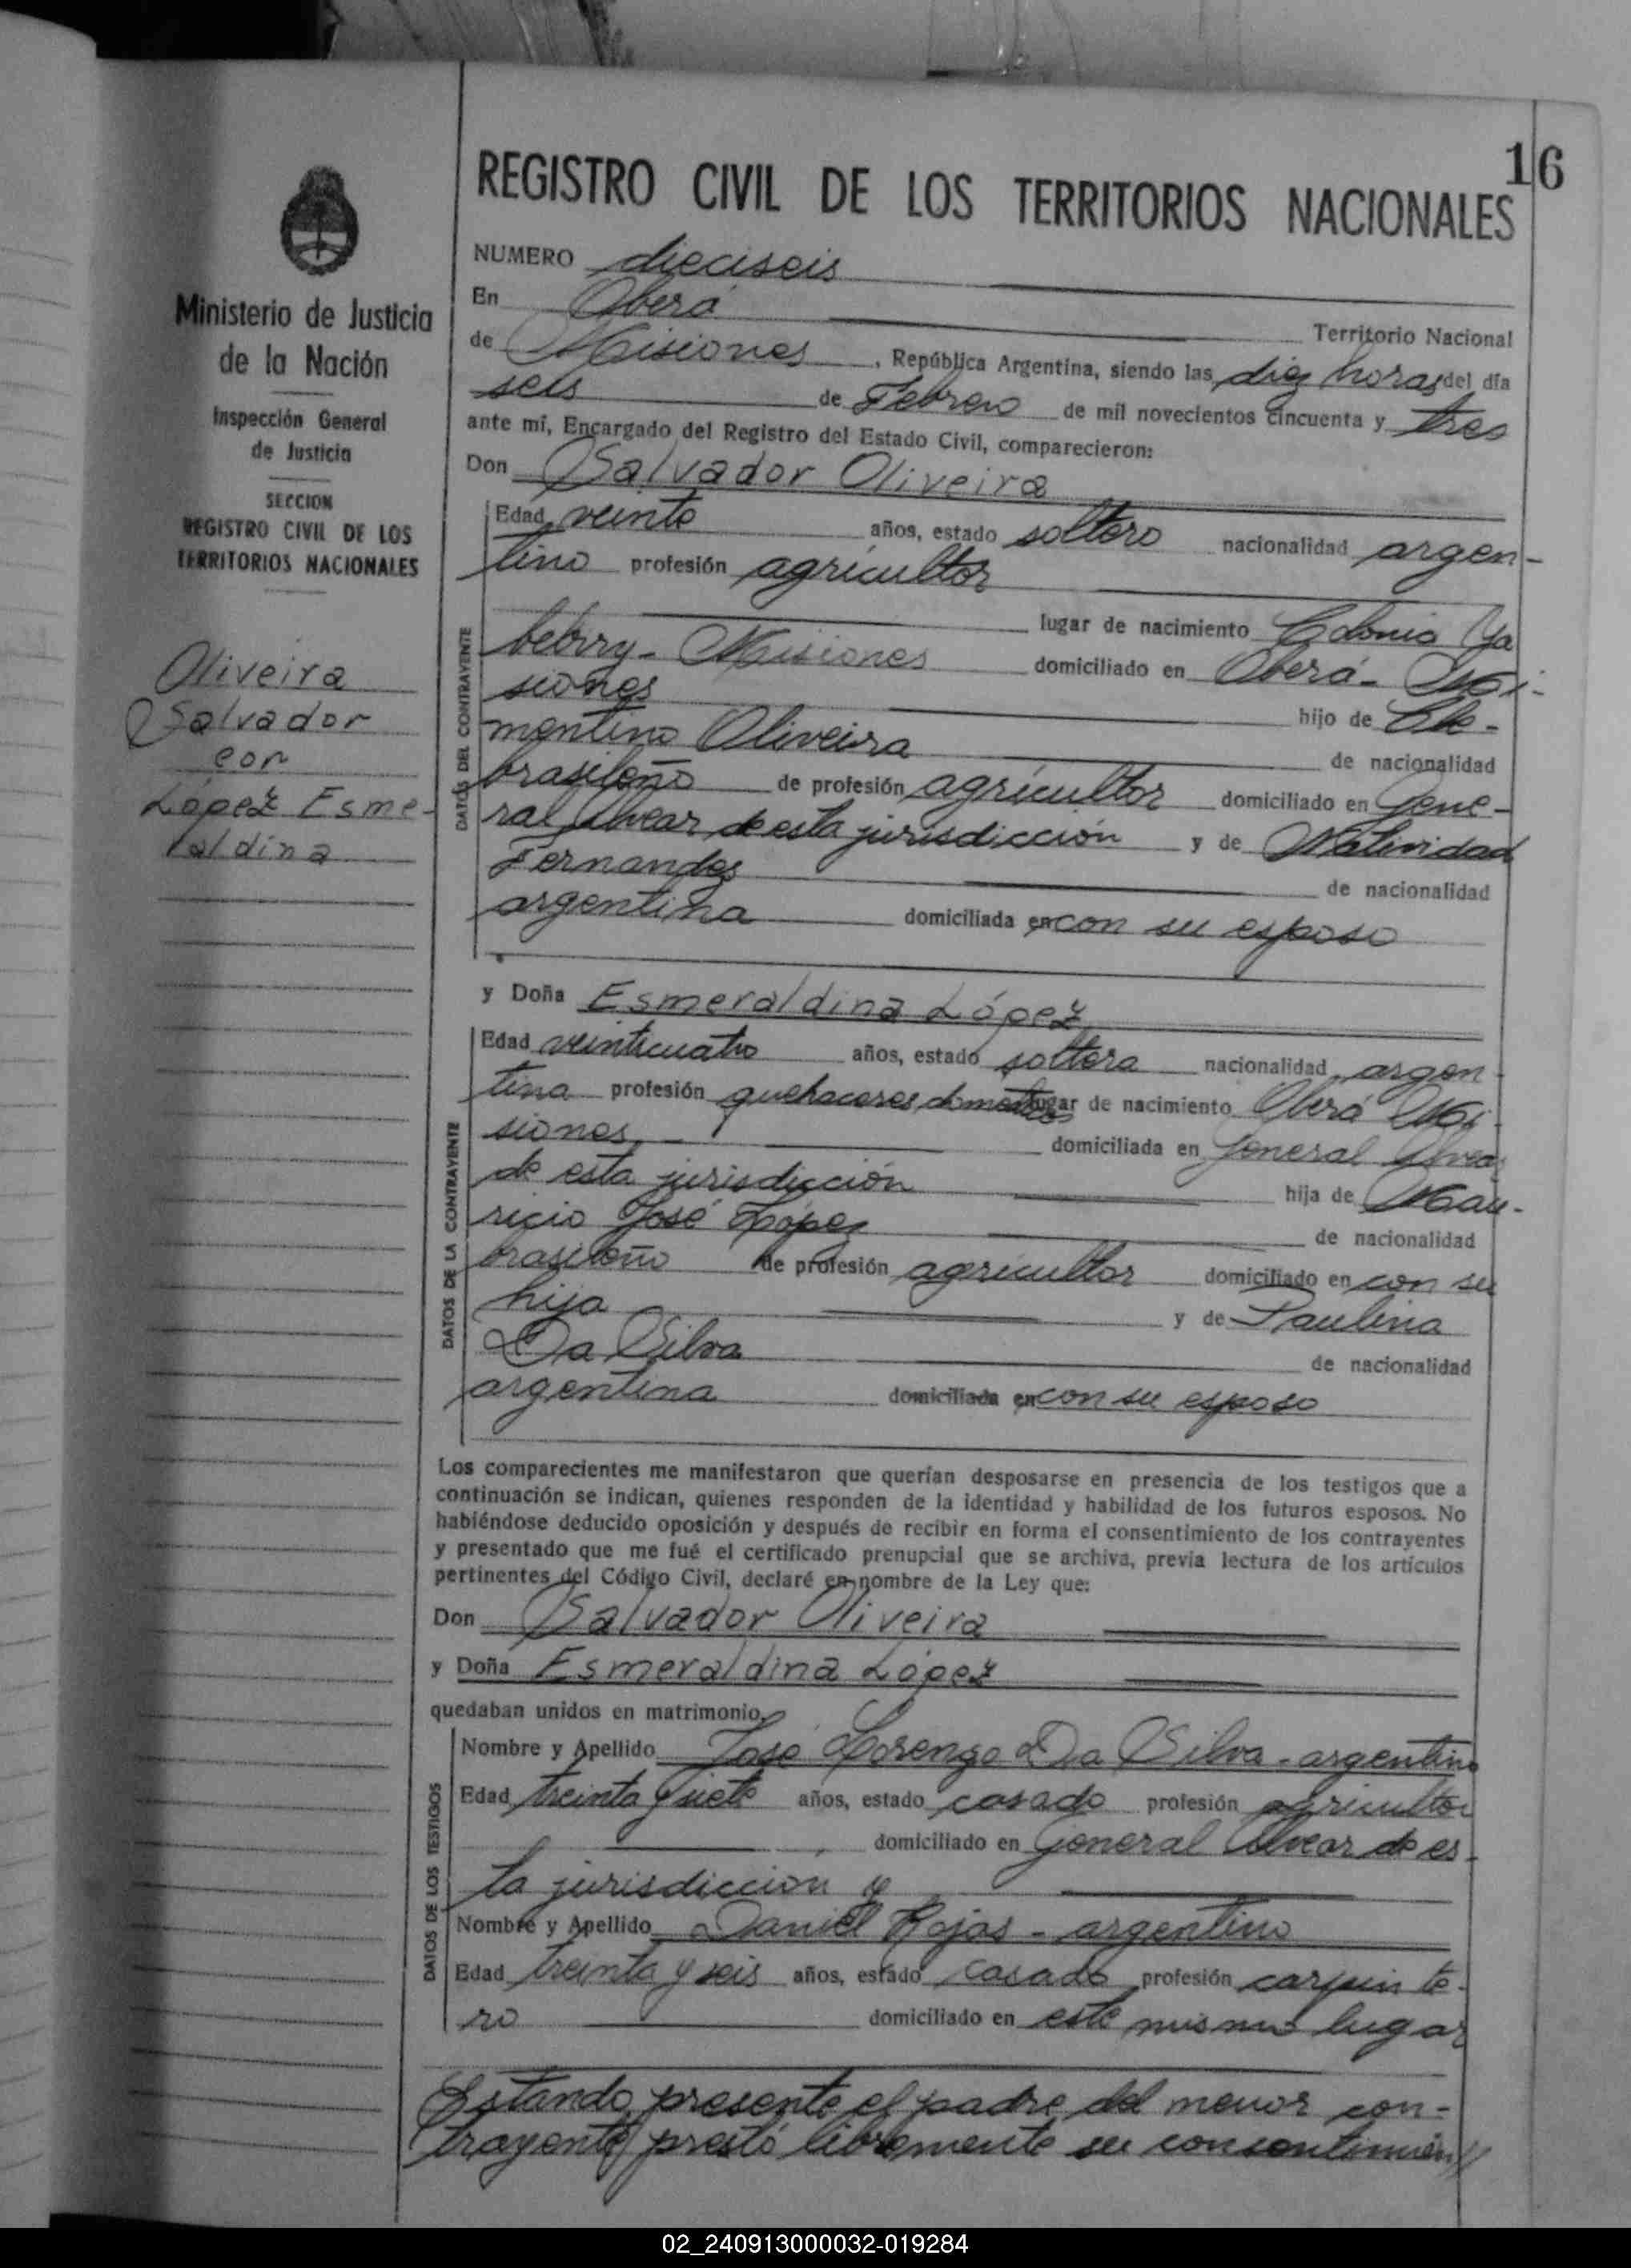 16
REGISTRO CIVIL DE LOS TERRITORIOS NACIONALES
Ministerio de Justicia
de la Nación
Inspección General
de Justicia
SECCION
REGISTRO CIVIL DE LOS
TERRITORIOS NACIONALES
Oliveira
Salvador
con
López Esme-
raldina
NUMERO dieciseis
En Oberá Territorio Nacional
de Misiones, República Argentina, siendo las diez horas del día
seis de Febrero de mil novecientos cincuenta y tres
ante mí, Encargado del Registro del Estado Civil, comparecieron:
Don Salvador Oliveira
DATOS DEL CONTRAYENTE
Edad veinte años, estado soltero nacionalidad argen-
tino profesión agricultor
lugar de nacimiento Colonia Ya
bebirry - Misiones domiciliado en Oberá - Mi-
siones hijo de Cle-
mentino Oliveira de nacionalidad
brasileño de profesión agricultor domiciliado en Gene-
ral Alvear de esta jurisdicción y de Natividad
Fernandes de nacionalidad
argentina domiciliada en con su esposo
y Doña Esmeraldina López
DATOS DE LA CONTRAYENTE
Edad veinticuatro años, estado soltera nacionalidad argen-
tina profesión quehaceres domesticos lugar de nacimiento Oberá Mi-
siones domiciliada en General Alvear
de esta jurisdicción hija de Mau-
ricio José López de nacionalidad
brasileño de profesión agricultor domiciliado en con su
hija y de Paulina
Da Silva de nacionalidad
argentina domiciliada en con su esposo
Los comparecientes me manifestaron que querían desposarse en presencia de los testigos que a
continuación se indican, quienes responden de la identidad y habilidad de los futuros esposos. No
habiéndose deducido oposición y después de recibir en forma el consentimiento de los contrayentes
y presentado que me fué el certificado prenupcial que se archiva, previa lectura de los artículos
pertinentes del Código Civil, declaré en nombre de la Ley que:
Don Salvador Oliveira
y Doña Esmeraldina López
quedaban unidos en matrimonio,
DATOS DE LOS TESTIGOS
Nombre y Apellido José Lorenzo Da Silva - argentino
Edad treinta y siete años, estado casado profesión agricultor
domiciliado en General Alvear de es-
ta jurisdicción y
Nombre y Apellido Daniel Rojas - argentino
Edad treinta y seis años, estado casado profesión carpinte-
ro domiciliado en este mismo lugar
Estando presente el padre del menor con-
trayente prestó libremente su consentimien//
02_240913000032-019284